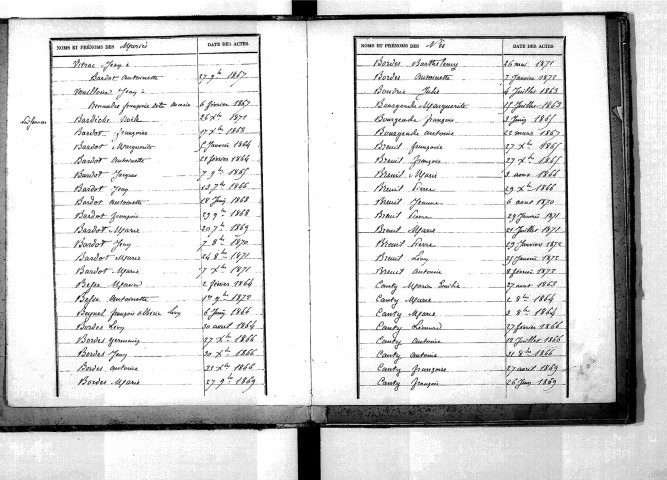 NOMS ET PRÉNOMS DES Mariés DATE DES ACTES
Vitrac Jean à
Bardot Antoinette 27 9bre 1867
Jean à
françoise dite Marie 6 février 1867
26 Xbre 1872
Bardot françoise 17 Xbre 1863
Bardot Marguerite 5 Janvier 1864
Bardot Antoinette 21 février 1864
Bardot Jacques 7 9bre 1865
Bardot Jean 23 7bre 1866
Bardot Antoinette 18 Juin 1868
Bardot françois 29 9bre 1868
Bardot Marie 20 7bre 1869
Bardot Jean 7 8bre 1870
Bardot Marie 24 8bre 1871
Bardot Marie 7 Xbre 1871
Besse 2 février 1864
Besse Antoinette 1872
Marie 6 Juin 1866
Bordes Léon 30 avril 1864
Bordes 27 Xbre 1866
Bordes Jean 30 Xbre 1866
Bordes Antoine 31 Xbre 1866
Bordes Marie 27 9bre 1869
NOMS ET PRÉNOMS DES Nés DATE DES ACTES
Bordes Barthélemy 26 mai 1871
Bordes Antoinette 7 Janvier 1872
Boudrie Jules 4 Juillet 1863
Bourgeade Marguerite 15 Juillet 1863
Bourgeade françois 3 Juin 1865
Bourgeade Antoine 22 mars 1867
Breuil françoise 27 Xbre 1865
Breuil françois 27 Xbre 1865
Breuil Marie 3 août 1866
Breuil Pierre 29 Xbre 1866
Breuil Jeanne 6 août 1870
Breuil Pierre 29 Janvier 1871
Breuil Marie 21 Juillet 1871
Breuil Pierre 29 Janvier 1872
Breuil Léon 31 Janvier 1872
Breuil Antoine 8 février 1872
Canty Marie Emilie 27 août 1863
Canty Marie 2 8bre 1864
Canty Marie 3 8bre 1864
Canty Léonard 27 février 1866
Canty Antoine 12 Juillet 1866
Canty Antoine 31 8bre 1866
Canty françoise 27 avril 1869
Canty françois 26 Juin 1869